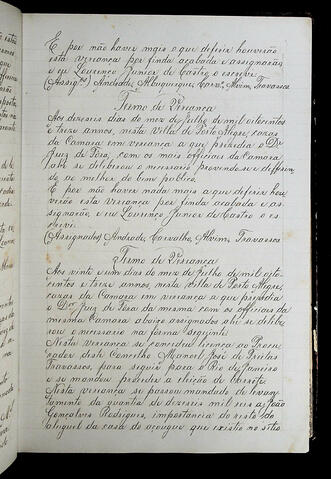 E por não haver mais o que deferir houverão
esta veriança por finda acabada e assignarão,
e eu Lourenço Junior de Castro o escrevi.
(Assigdos) Andrade, Albuquerque, Carvo, Alvim, Travassos
Termo de Veriança
Aos dezeseis dias do mez de Julho de mil oitocentos
e treze annos, nesta Villa de Porto Alegre, cazas
da Camara em veriança a que prezedia o Dr
Juiz de Fora, com os mais officiaes da Camara
ahi se deliberou o necessario provendo-se e deferin-
do ao melhor do bem publico.
E por não haver nada mais a que deferir hou-
verão esta veriança por finda acabada e as-
signarão, e eu Lourenço Junior de Castro o es-
crevi.
(Assignados) Andrade, Carvalho, Alvim, Travassos
Termo de Veriança
Aos vinte e um dias do mez de Julho de mil oito-
centos e treze annos, nesta Villa de Porto Alegre,
cazas da Camara em veriança a que prezedia
o Dr Juiz de Fora da mesma com os officiaes da
mesma Camara abaixo assignados ahi se delibe-
rou o necessario na forma seguinte.
Nesta veriança se concedeu licença ao Procu-
rador deste Concelho Manoel José de Freitas
Travassos, para seguir para o Rio de Janeiro
e se mandou proceder a eleição de barrete.
Nesta veriança se passou mandado de levan-
tamento da quantia de dezeseis mil reis a João
Gonçalves Rodrigues, importancia do resto do
aluguel da casa do açougue que existio no sitio